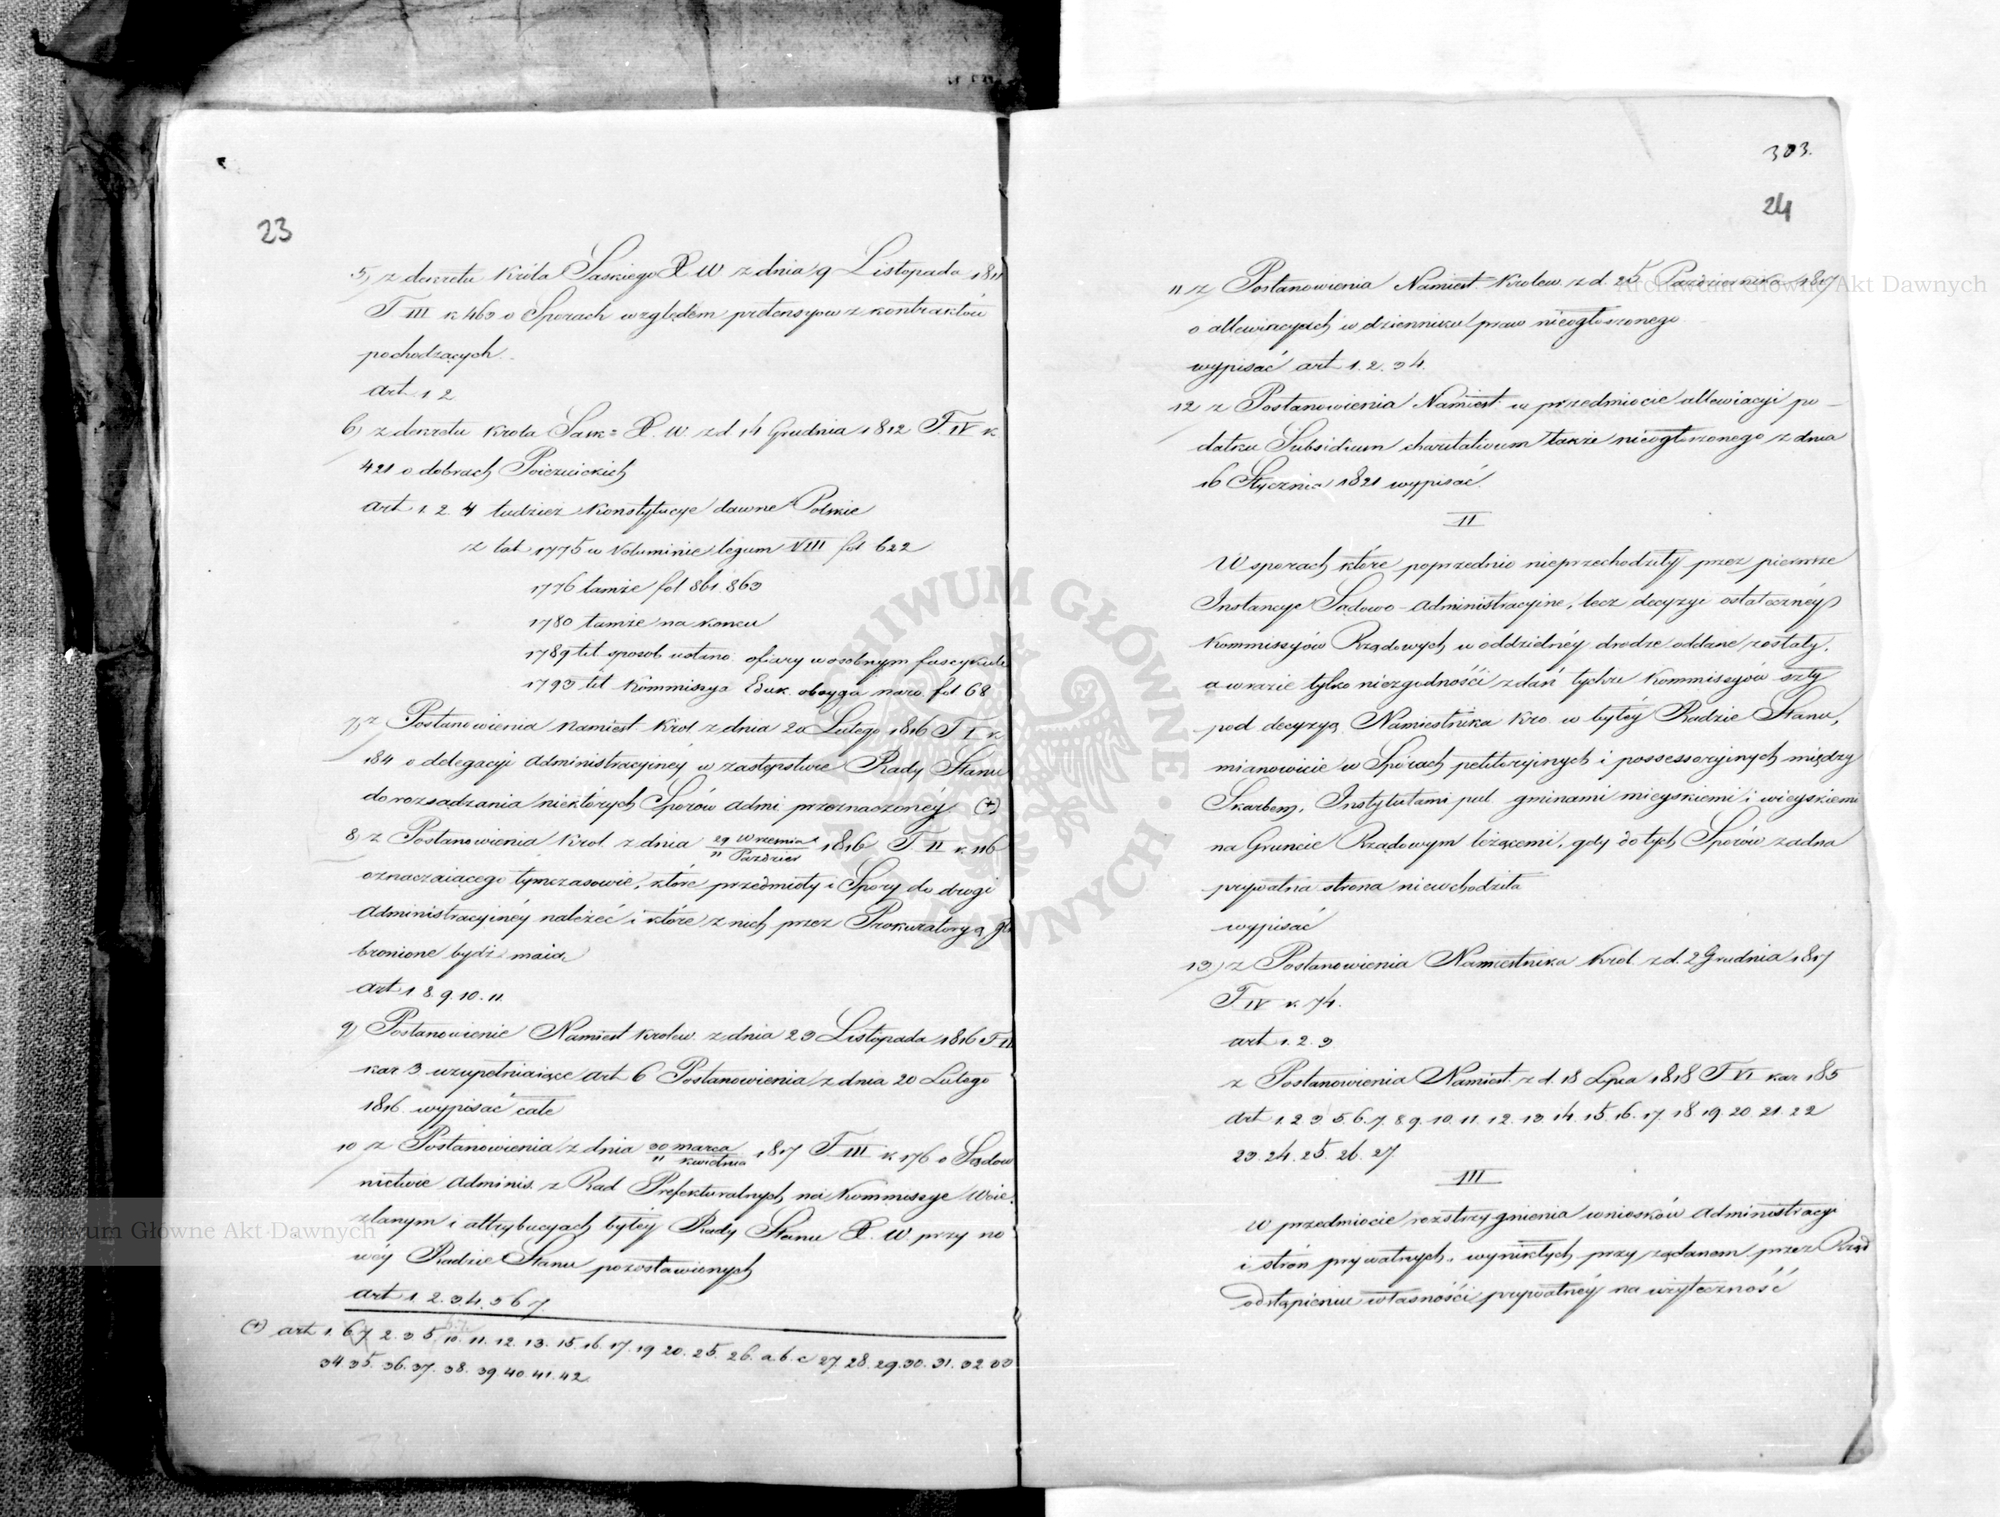 23
5) z dekretu Króla Saskiego X W z dnia 9 Listopada 1811
T. III k 463 o Sporach względem pretensyow z kontraktów
pochodzących
art 1 2
6) z dekretu Krola Sask= X. W. z d 14 Grudnia 1812 T. IV k
421 o dobrach Poiezuickich
art 1. 2. 4 tudzież Konstytucye dawne Polskie
z lat 1775 w Voluminie legum VIII fol 622
1776 tamże fol 861. 863
1780 tamże na końcu
1789 tit sposob ustano. ofiary w osobnym fascykule
1793 tit Kommissya Eduk. oboyga naro. fol 68
7) z Postanowienia Namiest Krol. z dnia 20 Lutego 1816 T I k
184 o delegacyi administracyinéy w zastępstwie Rady Stanu
do rozsądzania niektórych Sporów admi przeznaczonéy (+)
8) z Postanowienia Krol. z dnia 29 Wrzesnia / 11 Paździer 1816 T. II k. 116
oznaczaiącego tymczasowie, które przedmioty i Spory do drogi
administracyinéy należéć i które z nich przez Prokuratoryą
bronione bydź maią
art 1 8. 9. 10. 11
9) Postanowienie Namiest Krolew. z dnia 23 Listopada 1816 T. II
kar 3 uzupełniaiące art 6 Postanowienia z dnia 20 Lutego
1816 wypisać całe
10 z Postanowienia z dnia 30 marca / 11 kwietnia 1817 T. III k 176 o Sądow
nictwie adminis. z Rad Prefekturalnych na Kommissye Woie.
zlanym i attrybucyach byłéy Rady Stanu X. W przy no
wéy Radzie Stanu pozostawionych
art 1 2. 3 4. 5 6 7.
(+) art 1. 6 7 2. 3 5 10. 11. 12. 13. 15. 16. 17. 19 20. 25. 26. a. b. c 27. 28. 29. 30. 31. 32. 33
34 35. 36. 37. 38. 39. 40. 41. 42.
303.
24
11 z Postanowienia Namiest. Krolew. z d. 25 Pazdziernika 1817
o allewiacyach w dzienniku praw nieogłoszonego
wypisać art 1. 2. 3 4.
12 z Postanowienia Namiest w przedmiocie allewiacyi po-
datku Subsidium charitativum także nieogłoszonego z dnia
16 Stycznia 1821 wypisać.
II
W sporach które poprzednio nieprzechodziły przez pierwsze
Instancye Sądowo-administracyine, lecz decyzyi ostatecznéy
Kommissyów Rządowych w oddzielnéy drodze oddane zostały,
a w razie tylko niezgodności zdań tychże Kommissyów szły
pod decyzyą Namiestnika Kro. w byłéy Radzie Stanu,
mianowicie w Sporach petitoryinych i possessoryinych między
Skarbem, Instytutami pub. gminami mieyskiemi i wieyskiemi
na Gruncie Rządowym leżącemi, gdy do tych Sporów żadna
prywatna strona niewchodziła
wypisać
13) z Postanowienia Namiestnika Krol. z d. 2 Grudnia 1817
T. IV k. 74.
art 1. 2. 3
z Postanowienia Namiest. z d. 18 Lipca 1818 T VI kar 185
Art 1. 2 3 5. 6. 7. 8 9. 10. 11. 12. 13. 14. 15. 16. 17. 18 19. 20. 21. 22
23. 24. 25. 26. 27.
III
W przedmiocie rozstrzygnienia wniosków administracyi
i stron prywatnych, wynikłych przy żądanem przez Rząd
odstąpieniu własności prywatnéy na użyteczność
Archiwum Główne Akt Dawnych
Archiwum Główne Akt Dawnych
ARCHIWUM GŁÓWNE AKT DAWNYCH